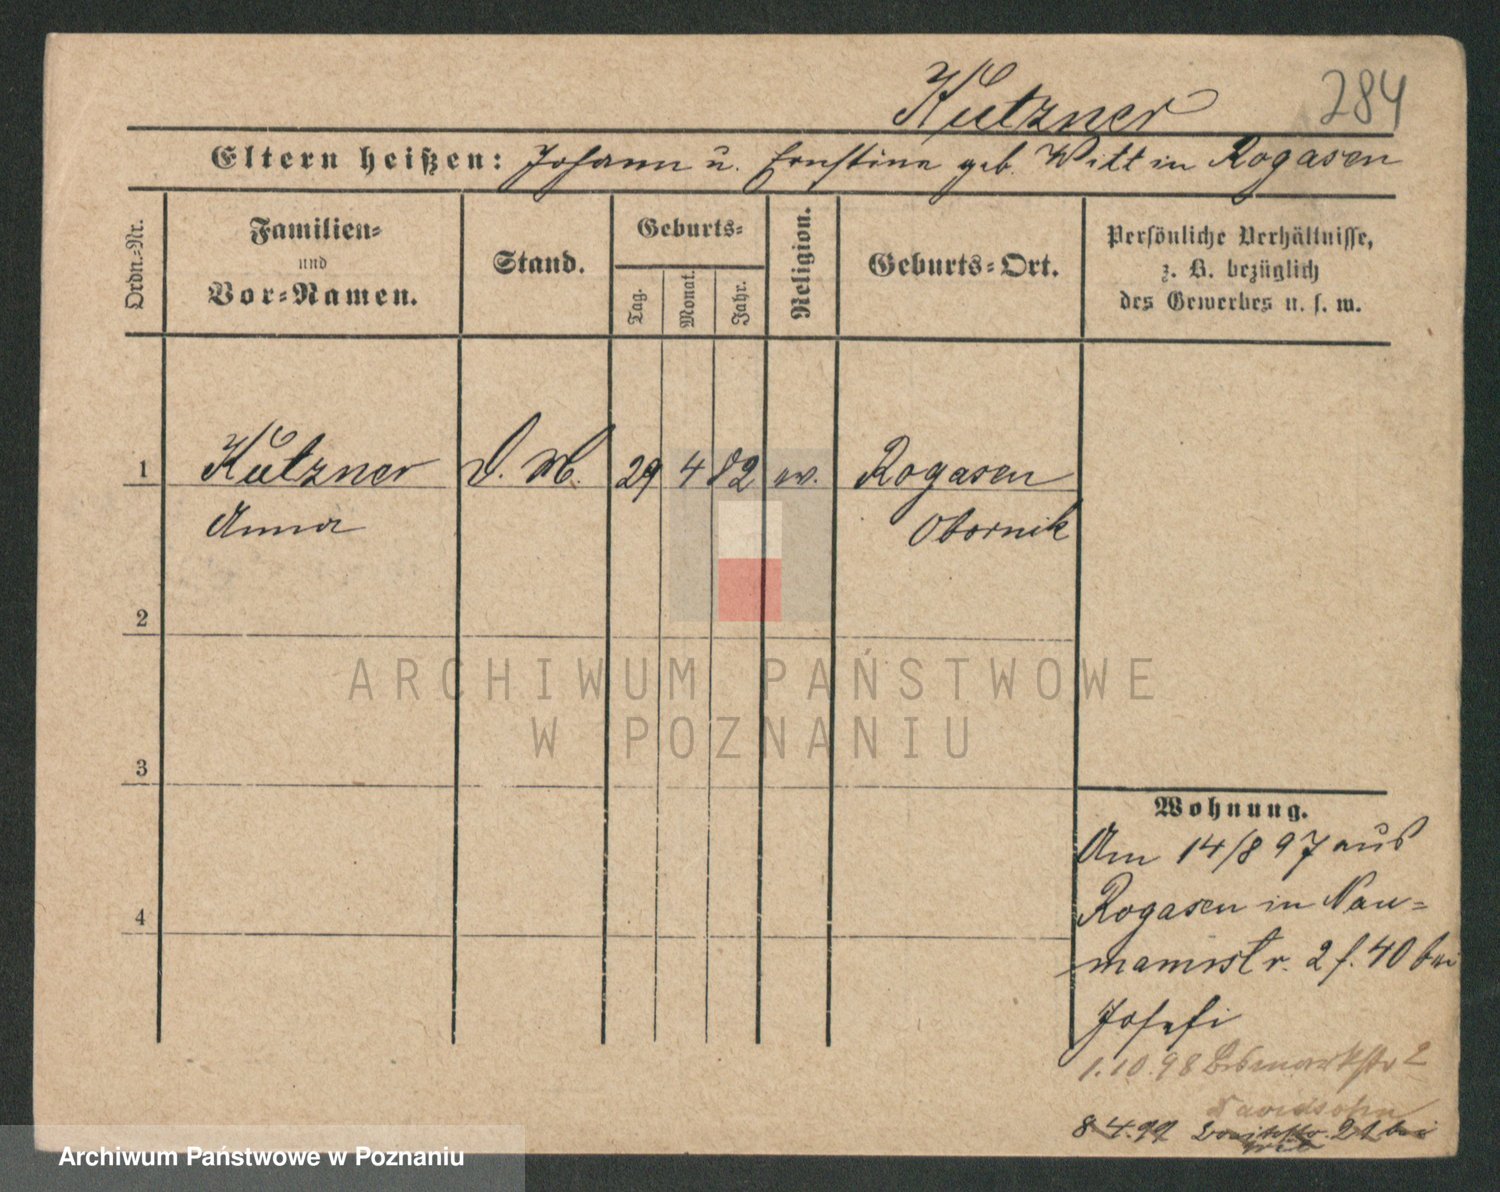 Kutzner 284
Eltern heißen: Johann u. Ernstine geb. Witt in Rogasen
Ordn.-Nr.
Familien-
und
Vor-Namen.
Stand.
Geburts-
Tag.
Monat.
Jahr.
Religion.
Geburts-Ort.
Persönliche Verhältnisse,
z. B. bezüglich
des Gewerbes u. s. w.
1 Kutzner D. M. 29 4 82 ev. Rogasen
Anna Obornik
2
ARCHIWUM PAŃSTWOWE
W POZNANIU
3
Wohnung.
Am 14/8 97 aus
Rogasen in Nau-
mannstr. 2 f. 40 bei
4
Josefi
1.10.98 Bismarkstr 2
Davidsohn
8 4.99 21 bei
Archiwum Państwowe w Poznaniu